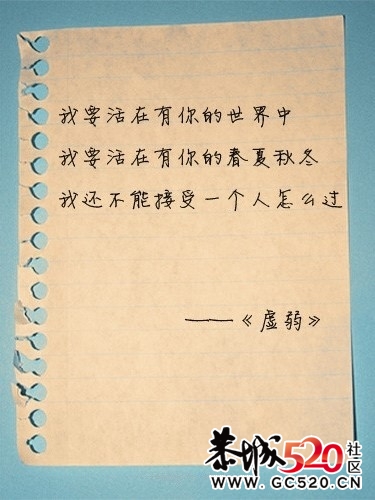 我要活在有你的世界中
我要活在有你的春夏秋冬
我还不能接受一个人怎么过
——《虚弱》
恭城520社区
WWW.GC520.CN